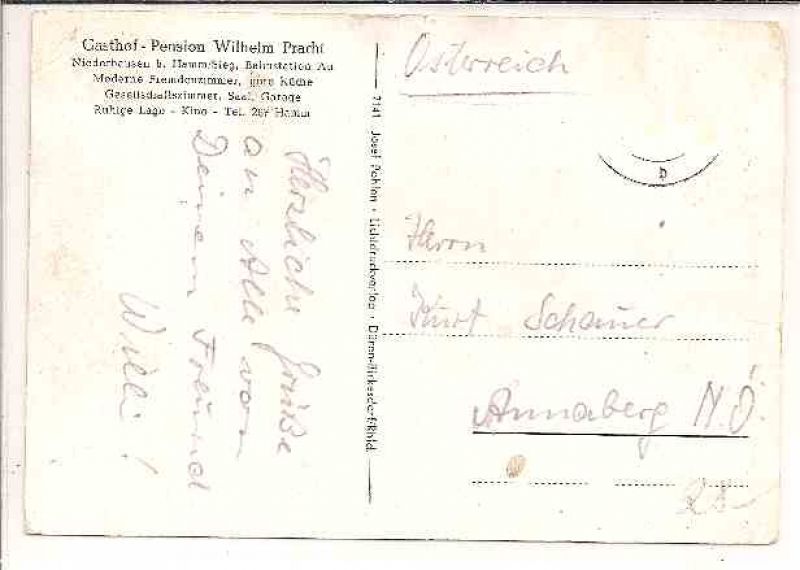 Gasthof - Pension Wilhelm Pracht
Niederhausen b. Hamm/Sieg, Bahnstation Au
Moderne Fremdenzimmer, gute Küche
Gesellschaftszimmer, Saal, Garage
Ruhige Lage - Kino - Tel. 207 Hamm
Herzliche Grüße
an Alle von
Deinem Freund
Willi !
7141 Josef Pohlen · Lichtdruckverlag · Düren-Birkesdorf/Rhld.
Österreich
b
Herrn
Kurt Schauer
Annaberg N.Ö.